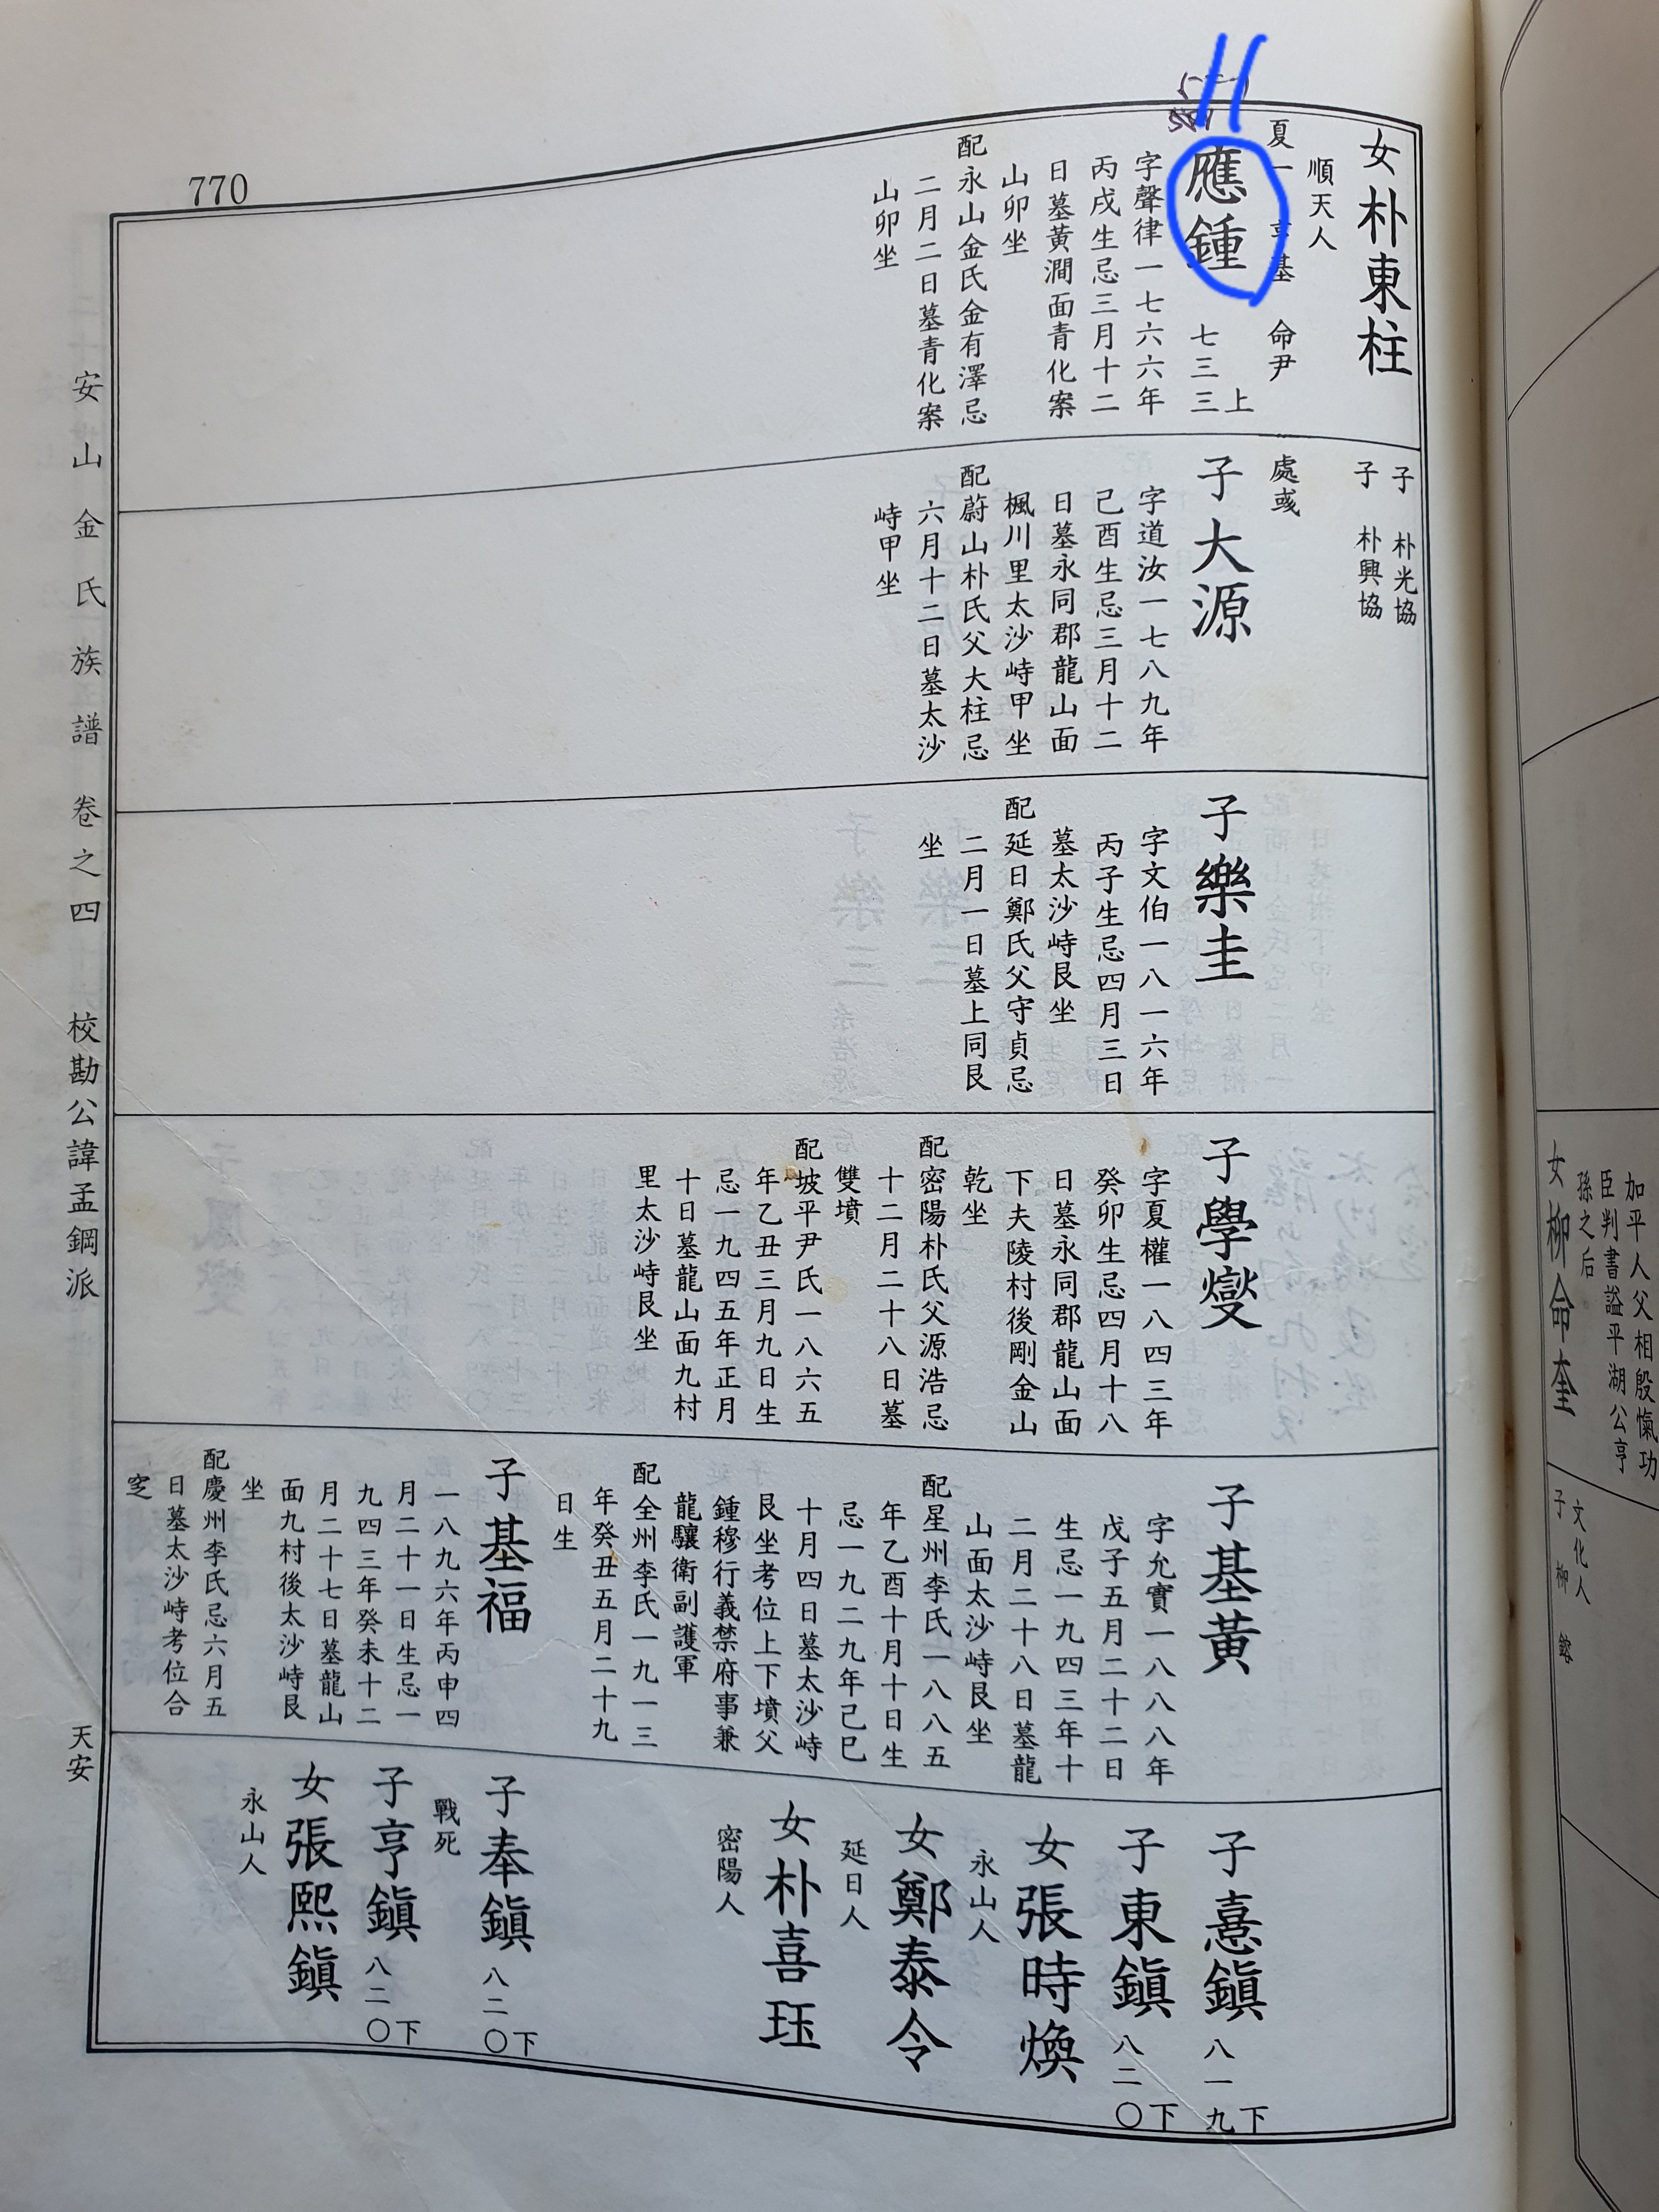 770
安山金氏族譜 卷之四 校勘公諱孟鋼派 天安
女朴東柱
順天人
夏一
命尹
應鍾 七三三上
字聲律一七六六年
丙戌生忌三月十二
日墓黃澗面青化案
山卯坐
配永山金氏金有澤忌
二月二日墓青化案
山卯坐
子 朴光協
子 朴興協
處彧
子大源
字道汝一七八九年
己酉生忌三月十二
日墓永同郡龍山面
楓川里太沙峙甲坐
配蔚山朴氏父大柱忌
六月十二日墓太沙
峙甲坐
子樂圭
字文伯一八一六年
丙子生忌四月三日
墓太沙峙艮坐
配延日鄭氏父守貞忌
二月一日墓上同艮
坐
子學燮
字夏權一八四三年
癸卯生忌四月十八
日墓永同郡龍山面
下夫陵村後剛金山
乾坐
配密陽朴氏父源浩忌
十二月二十八日墓
雙墳
配坡平尹氏一八六五
年乙丑三月九日生
忌一九四五年正月
十日墓龍山面九村
里太沙峙艮坐
子基黃
字允實一八八八年
戊子五月二十二日
生忌一九四三年十
二月二十八日墓龍
山面太沙峙艮坐
配星州李氏一八八五
年乙酉十月十日生
忌一九二九年己巳
十月四日墓太沙峙
艮坐考位上下墳父
鍾穆行義禁府事兼
龍驤衛副護軍
配全州李氏一九一三
年癸丑五月二十九
日生
子基福
一八九六年丙申四
月二十一日生忌一
九四三年癸未十二
月二十七日墓龍山
面九村後太沙峙艮
坐
配慶州李氏忌六月五
日墓太沙峙考位合
窆
子憙鎭 八一九下
子東鎭 八二〇下
女張時煥
永山人
女鄭泰令
延日人
女朴喜珏
密陽人
子奉鎭 八二〇下
戰死
子亨鎭 八二〇下
女張熙鎭
永山人
加平人父相殷愾功
臣判書謚平湖公亨
孫之后
女柳命奎
文化人
子 柳